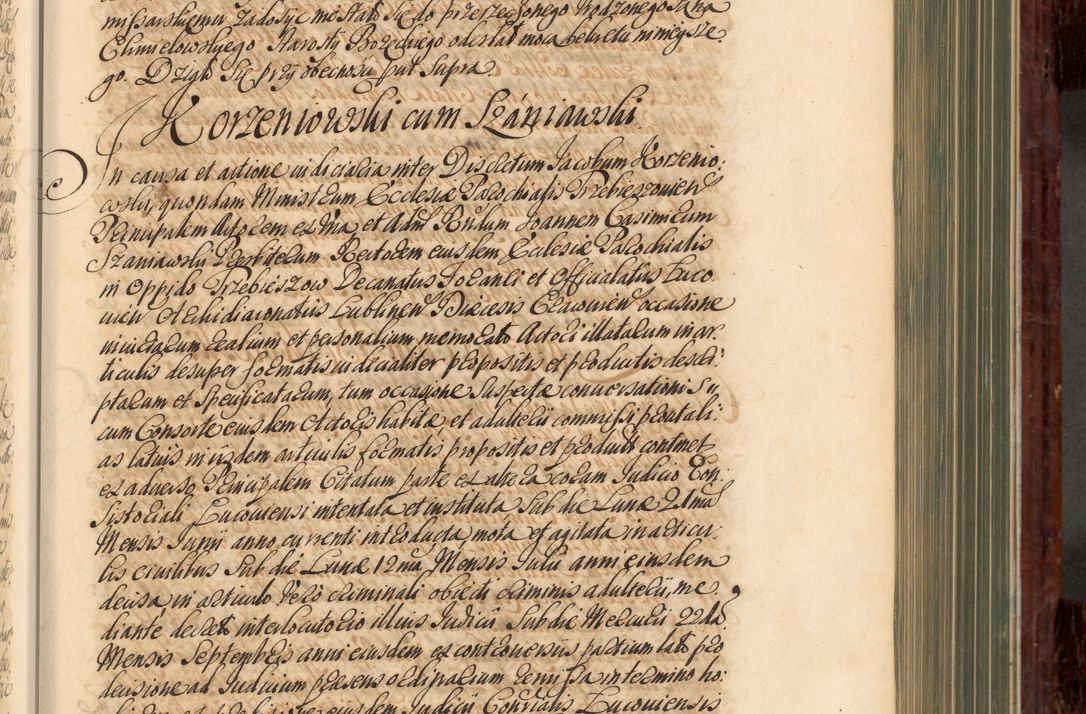 missarskiemu zadosyc nie stało się do przerzeczonego Urodzonego Jana
Chmielowskyego Starosty Bozeckiego odesłał mocą Dekretu ninieysze:
go. Działo Się przy obecnosci put Supra.
Korzeniowski cum Szaniawski
In causa et actione iudiciaria inter Discretum Jacobum Korzenio:
wski, quondam Ministrum Ecclesiæ Parochialis Trzebieszovien
Principalem Actorem ex Una et Adm Rndum Joannem Casimirum
Szaniawski Præsbiterum Rectorem eiusdem Ecclesiæ Parochialis
in Oppido Trzebieszow Decanatus Foranei et Officialatus Luco
vien Archidiaconatus Lublinen Diæcesis Cracovien occasione
iniuriarum realium et personalium memorato Actori illatarum in ar
ticulis desuper formatis iudicialiter propositis et productis descri:
ptarum et Specificatarum, tum occasione Suspectæ conversationis Su
cum Consorte eiusdem Actoris habitæ et adulterii commissi prout ali:
as latius in iisdem articulis formatis propositis et productis continet
ex adverso Principalem Citatum parte ex altera coram Judicio Con
sistoriali Lucoviensi intentata et instituta Sub die Lunæ 21ma
Mensis Junii anno currenti introducta mota et agitata in articu:
lis civilibus Sub die Lunæ 12ma Mensis Julii anni eiusdem
decisa, in articulo vero criminali obiecti criminis adulterii, me
diante decreto interlocutorio illius Judicii Sub die Mercurii 22da
Mensis Septembris anni eiusdem ex controversiis partium lato pro
decisione ad Judicium præsens ordinarium remissa in termino ho:
eiusdem Judicii Consrialis Lucoviensis